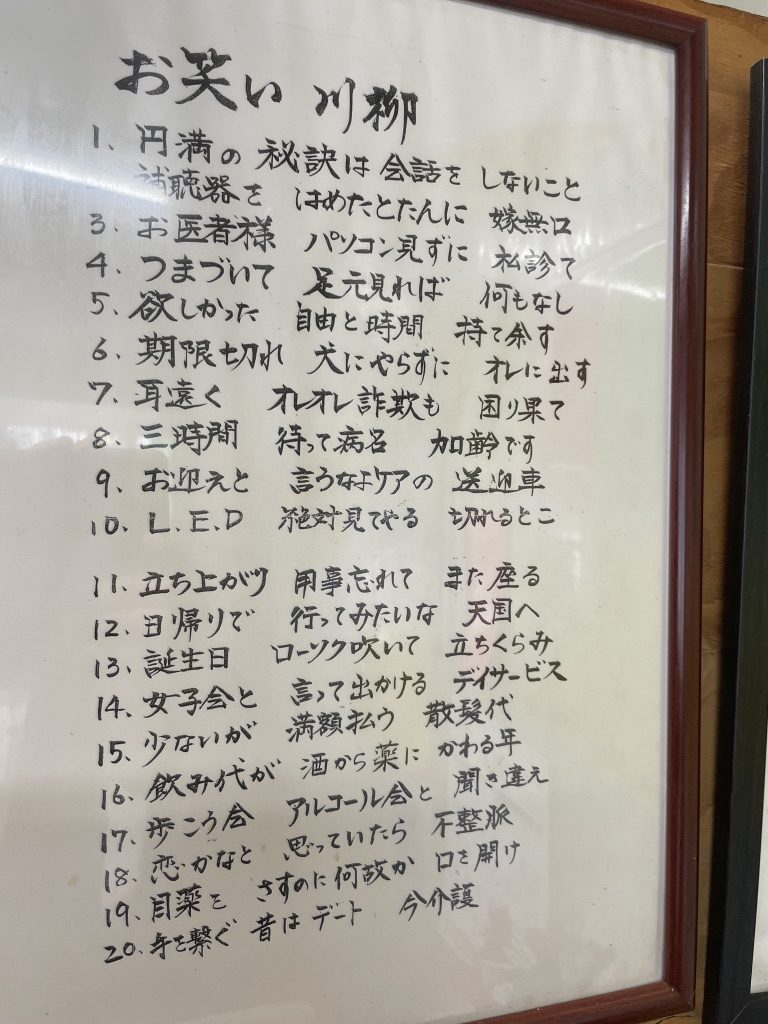 お笑い 川柳
1. 円満の 秘訣は 会話を しないこと
補聴器を はめたとたんに 嫁無口
3. お医者様 パソコン見ずに 私診て
4. つまづいて 足元見れば 何もなし
5. 欲しかった 自由と時間 持て余す
6. 期限切れ 犬にやらずに オレに出す
7. 耳遠く オレオレ詐欺も 困り果て
8. 三時間 待って病名 加齢です
9. お迎えと 言うなよケアの 送迎車
10. L.E.D 絶対見てやる 切れるとこ
11. 立ち上がり 用事忘れて また座る
12. 日帰りで 行ってみたいな 天国へ
13. 誕生日 ローソク吹いて 立ちくらみ
14. 女子会と 言って出かける デイサービス
15. 少ないが 満額払う 散髪代
16. 飲み代が 酒から薬に かわる年
17. 歩こう会 アルコール会と 聞き違え
18. 恋かなと 思っていたら 不整脈
19. 目薬を さすのに何故か 口を開け
20. 手を繋ぐ 昔はデート 今介護